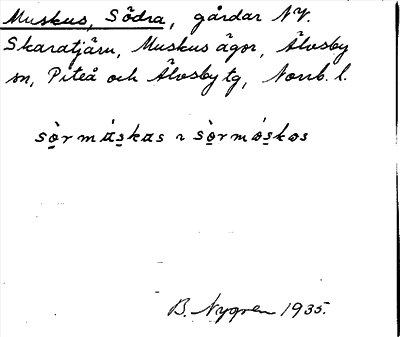 Muskus, Södra, gårdar NV.
Skaratjärn, Muskus ägor, Älvsby
sn, Piteå och Älvsby tg, Norrb. l.
sò̱rmás̱kas ~ sò̱rmós̱kos
B. Nygren 1935.